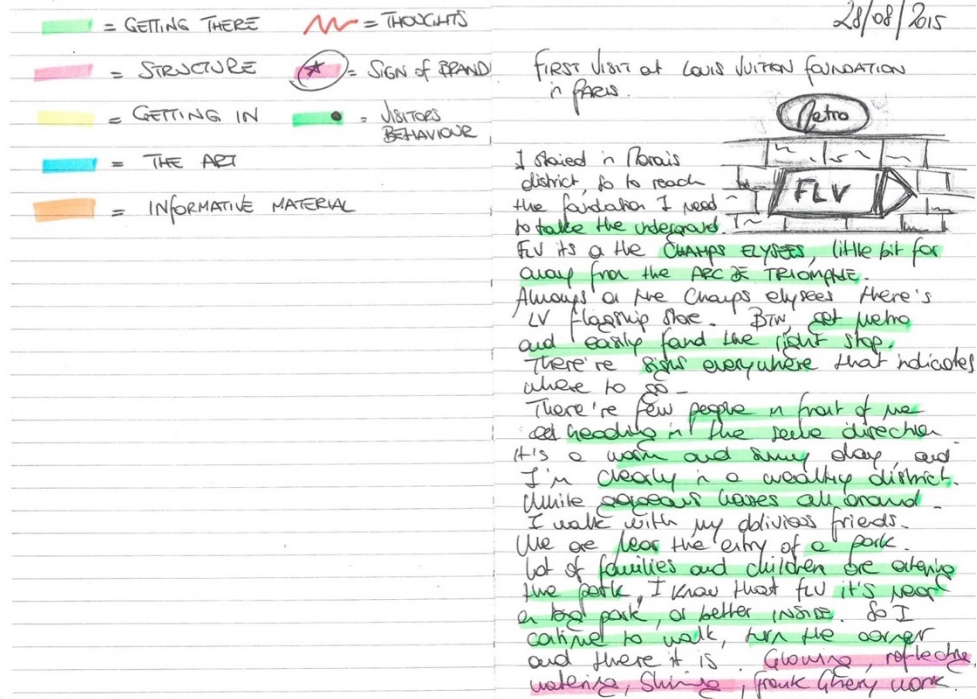 = GETTING THERE
= THOUGHTS
= STRUCTURE
= SIGN of BRAND
= GETTING IN
= VISITORS
BEHAVIOUR
= THE ART
= INFORMATIVE MATERIAL
28/08/2015
FIRST VISIT at LOUIS VUITTON FOUNDATION
in PARIS.
Metro
FLV
I staied in Marais
district, so to reach
the foundation I need
to take the underground.
FLV its a the CHAMPS ELYSEES, little bit far
away from the ARC DE TRIOMPHE.
Always a the Champs elysees there's
LV flagship store. BTW, get metro
and easily found the right stop.
There're signs everywhere that indicates
where to go -
There're few people in front of me
and heading in the same direction
It's a warm and sunny day, and
I'm clearly in a wealthy district.
White gorgeous houses all around.
I walk with my oblivios friends.
We are near the entry of a park.
Lot of families and children are entering
the park, I know that FLV it's near
a big park, or better INSIDE. So I
continue to walk, turn the corner
and there it is. Glowing, reflecting,
watering, Shining, Frank Ghery work.